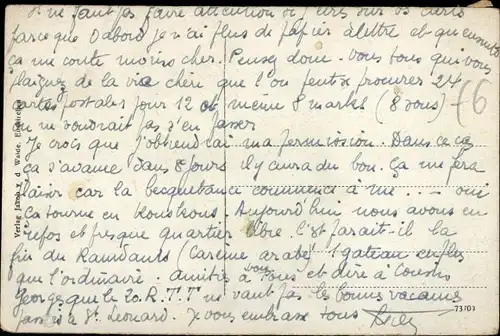 ne faut pas faire attention si j'écris sur des cartes
parce que Dabord je n'ai plus de papier à lettre et qu'ensuite
ça me coute moins cher. Pensez donc. Vous tous qui vous
plaignez de la vie chère que l'on peut procurer 24
cartes postales pour 12 et même 8 marks (8 sous)
on ne voudrait pas s'en passer
Je crois que j'obtiendrai ma permission. Dans ce cas
ça s'avance dans 8 jours il y aura du bon. Ça me fera
plaisir car la becquetance commence à me ... oui
ça tourne en Kouskous. Aujourd'hui nous avons eu
repos et presque quartier libre. C'est parait-il la
fin du Ramdam's (Carême arabe) 1 gateau en plus
que l'ordinaire. Amitiés à vous tous et dire à Cousin
Georges que le 20. R.T.T ne vaut pas les bonnes vacances
passées à St. Léonard. Je vous embrasse tous
Verlag Jacob v. d. Walde,
73703